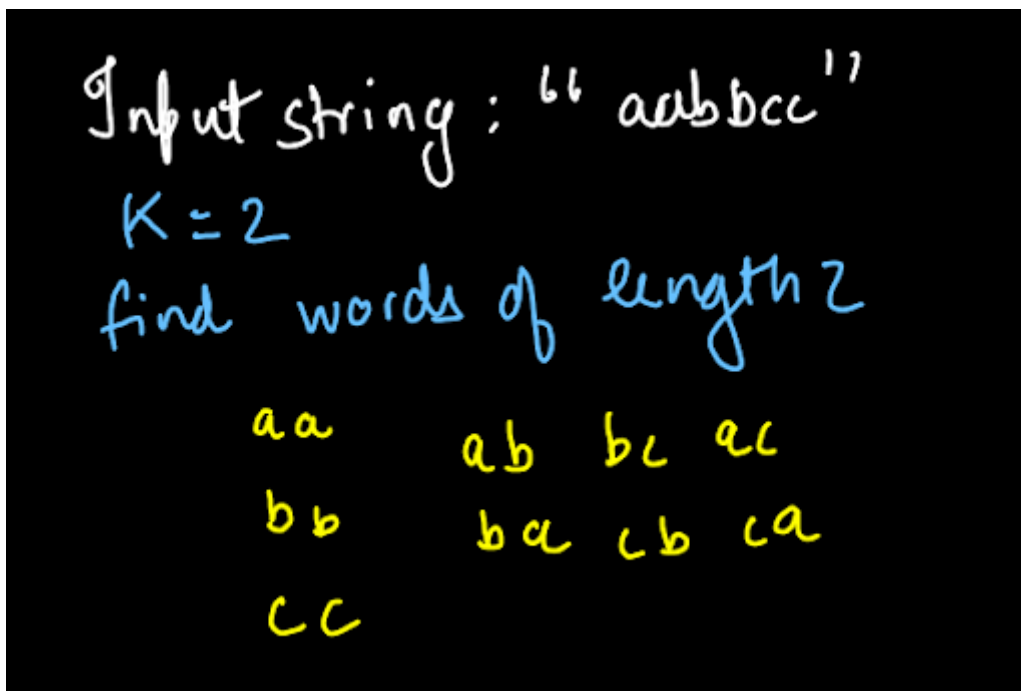 Input string: "aabbcc"
K=2
find words of length 2
aa ab bc ac
bb ba cb ca
cc